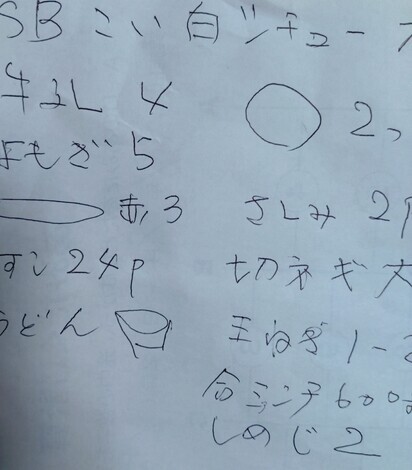 SB こい白シチュー
牛よし 4
よもぎ 5
赤 3
すし 24P
うどん
2
さしみ 2P
切ネギ 大
玉ねぎ 1-2
合ミンチ 600g
しめじ 2